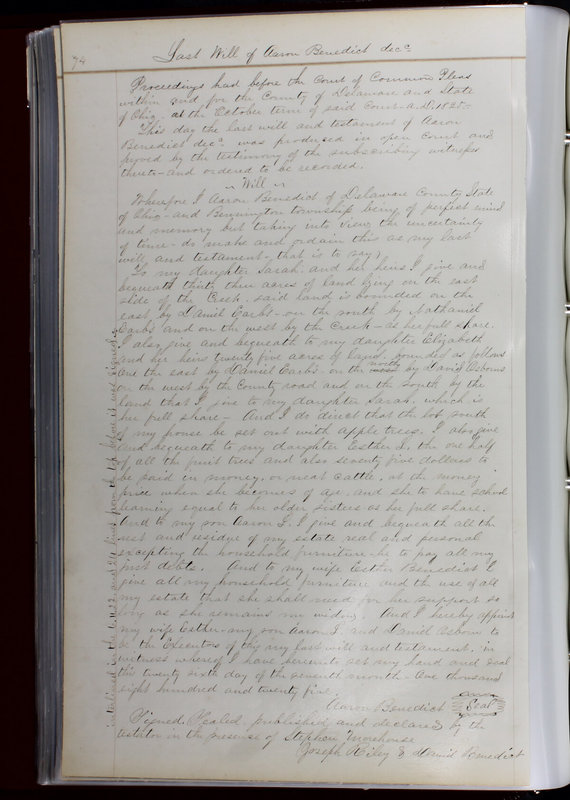 74
Last Will of Aaron Benedict decd
Proceedings had before the Court of Common Pleas
within and for the County of Delaware and State
of Ohio, at the October term of said Court - A.D. 1825 -
This day the last will and testament of Aaron
Benedict decd was produced in open Court and
proved by the testimony of the subscribing witnesses
thereto - and ordered to be recorded.
~ Will ~
Wherefore I Aaron Benedict of Delaware County State
of Ohio - and Bennington township being of perfect mind
and memory but taking into view the uncertainty
of time - do make and ordain this as my last
will and testament, that is to say,
To my daughter Sarah and her heirs I give and
bequeath thirty three acres of land lying on the east
side of the Creek, said land is bounded on the
east by Daniel Earbs - on the south by Nathaniel
Earbs and on the west by the Creek - as her full share.
I also give and bequeath to my daughter Elizabeth
and her heirs twenty five acres of land, bounded as follows
One the east by Daniel Earbs - on the north by David Osborns
on the west by the County road and on the South by the
land that I give to my daughter Sarah, which is
her full share - And I do direct that the lot south
of my house be set out with apple trees. I also give
and bequeath to my daughter Esther L. the one half
of all the fruit trees and also seventy five dollars to
be paid in money, or neat cattle, at the money
price when she becomes of age, and she to have school
learning equal to her older sisters as her full share.
And to my son Aaron L. I give and bequeath all the
rest and residue of my estate real and personal
excepting the household furniture - he to pay all my
just debts. And to my wife Esther Benedict I
give all my household furniture and the use of all
my estate that she shall need for her support so
long as she remains my widow. And I hereby appoint
my wife Esther - my son Aaron L. and Daniel Osborn to
be the Executors of this my last will and testament. in
witness whereof I have hereunto set my hand and seal
this twenty sixth day of the seventh month. One thousand
eight hundred and twenty five.
Aaron Benedict Seal
Signed, Sealed, published and declared by the
testator in the presense of Stephen Morehouse
Joseph Riley & David Benedict